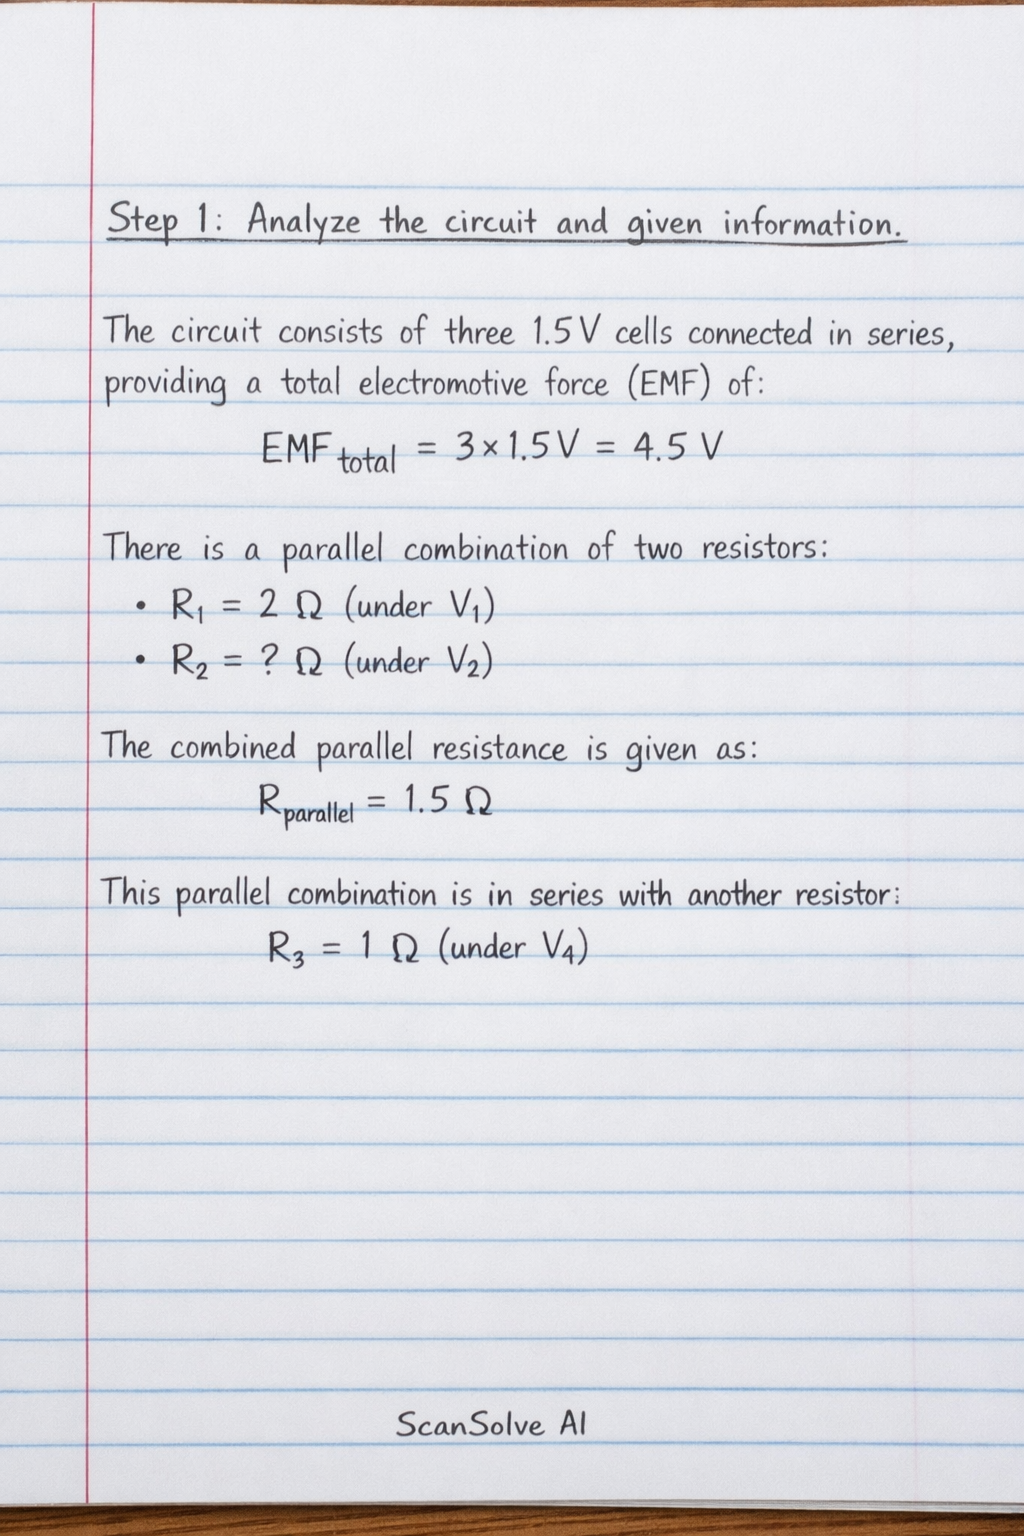 Step 1: Analyze the circuit and given information.
The circuit consists of three 1.5 V cells connected in series,
providing a total electromotive force (EMF) of:
EMF total = 3 × 1.5 V = 4.5 V
There is a parallel combination of two resistors:
• R₁ = 2 Ω (under V₁)
• R₂ = ? Ω (under V₂)
The combined parallel resistance is given as:
Rparallel = 1.5 Ω
This parallel combination is in series with another resistor:
R₃ = 1 Ω (under V₄)
ScanSolve AI